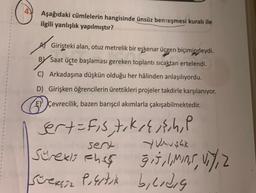 4. Aşağıdaki cümlelerin hangisinde ünsüz benzeşmesi kuralı ile
ilgili yanlışlık yapılmıştır?
A) Girişteki alan, otuz metrelik bir eşkenar üçgen biçimindeydi.
B) Saat üçte başlaması gereken toplantı sıcaktan ertelendi.
C) Arkadaşına düşkün olduğu her hâlinden anlaşılıyordu.
D) Girişken öğrencilerin ürettikleri projeler takdirle karşılanıyor.
E) Çevrecilik, bazen barışcıl akımlarla çakışabilmektedir.
sert = F,s,t,k,ç,ş,h,p
sert yumuşak